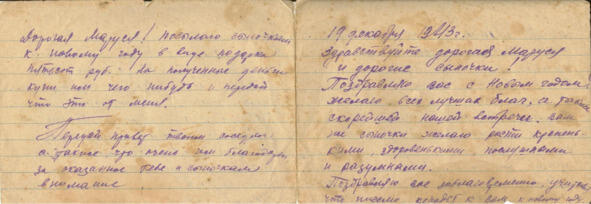 19 декабря 1943г.
Здравствуйте дорогая Маруся
и дорогие сыночки!
Поздравляю вас с Новым годом
желаю всех лучших благ, а также
скорейшей нашей встречи, вам
же сыночки желаю расти крепень-
кими, здоровенькими послушными
и разумными.
Поздравляю вас заблаговременно, учитывая
что письмо к вам к новому году
Дорогая Маруся! посылаю сыночкам
к новому году в виде подарка
пятьсот руб. На полученные деньги
купи им чего нибудь и передай
что это от меня.
Передай привет твоим соседям
а также что очень им благодарен
за оказанное тебе и сыночкам
внимание